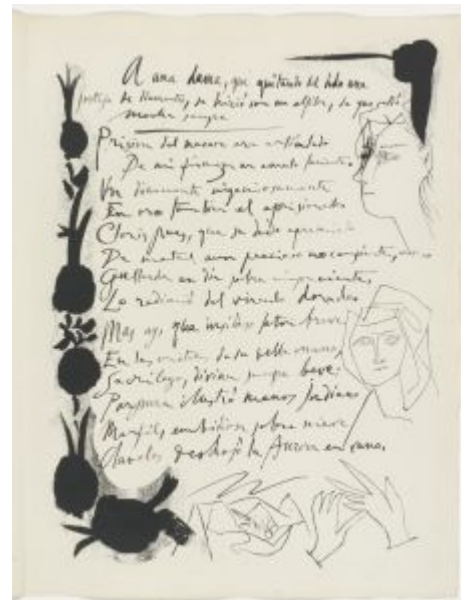 A una dama, que quitando del dedo una
sortija de diamantes, se hirió con un alfiler, de que salió
mucha sangre
Prision del nacar era articulado
De mi firmeza un emulo luciente
Un diamante ingeniosamente
En oro tambien el aprisionado
Cloris pues, que su dedo
De metal aun precioso no
Gallarda un dia sobre impaciente
Lo redimió del vinculo dorado.
Mas ay, que insidioso laton breve
En los cristales de su bella mano
Sacrilego, divina sangre bebe:
Purpura ilustró menos Indiano
Marfil, sobre nieve
Claveles deshojó la Aurora en vano.